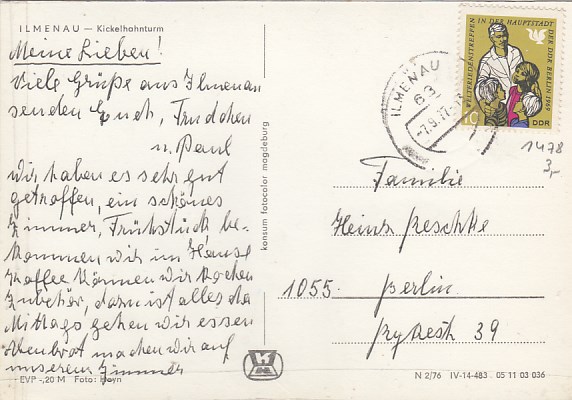 ILMENAU — Kickelhahnturm
Meine Lieben!
Viele Grüße aus Ilmenau
senden Euch, Trudchen
u. Paul
wir haben es sehr gut
getroffen, ein schönes
Zimmer, Frühstück be-
kommen wir im Hause
Kaffee können wir kochen
Zubehör, dazu ist alles da
Mittags gehen wir essen
Abenbrot machen wir auf
unserem Zimmer
EVP -,20 M Foto: Hoyn
konsum fotocolor magdeburg
WELTFRIEDENSTREFFEN IN DER HAUPTSTADT DER DDR BERLIN 1969
10
DDR
ILMENAU
63
-7.9.77-
1478
3,-
Familie
Heinz Peschke
1055. Berlin
39
N 2/76 IV-14-483 05 11 03 036